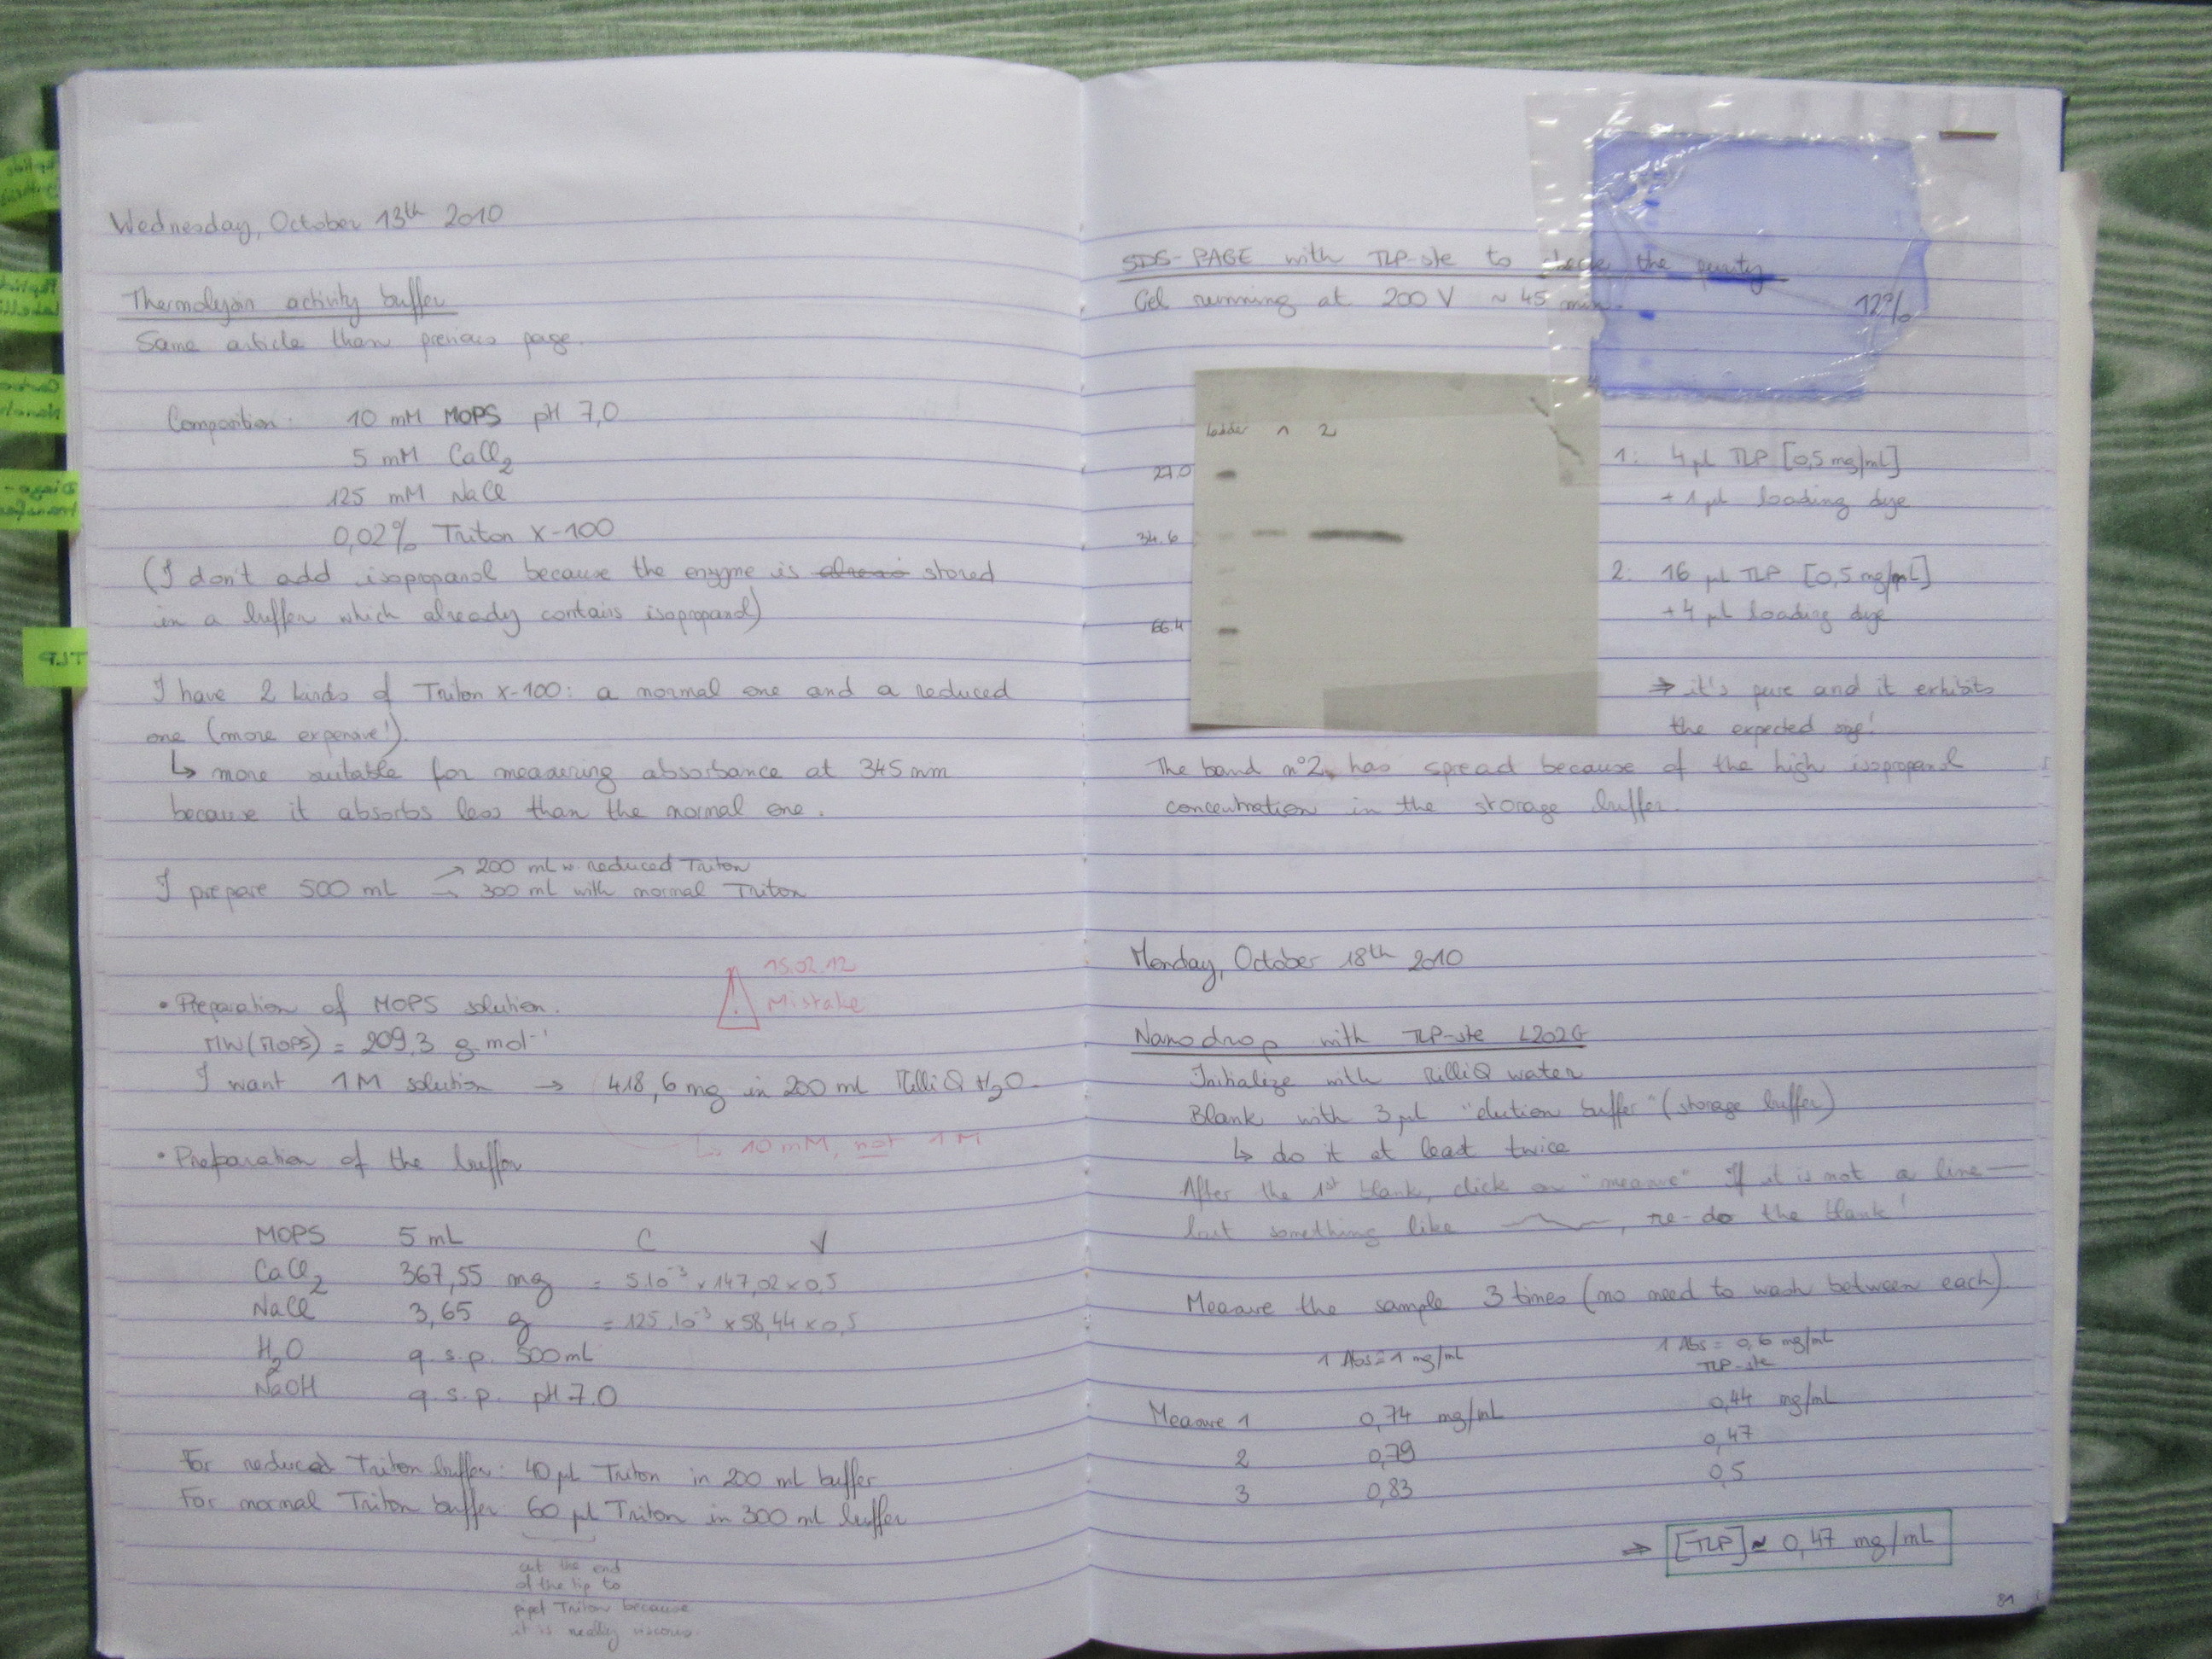 Wednesday, October 13th 2010
Thermolysin activity buffer
Same article than previous page.
Composition: 10 mM MOPS pH 7,0
5 mM CaCl2
125 mM NaCl
0,02% Triton X-100
(I don't add isopropanol because the enzyme is stored
in a buffer which already contains isopropanol)
I have 2 kinds of Triton X-100: a normal one and a reduced
one (more expensive!).
↳ more suitable for measuring absorbance at 345 nm
because it absorbs less than the normal one.
→ 200 ml w. reduced Triton
I prepare 500 mL → 300 ml with normal Triton
15.02.12
Mistake
• Preparation of MOPS solution.
MW(MOPS) = 209,3 g.mol-1
I want 1M solution → 418,6 mg in 200 ml MilliQ H2O.
↳ 10 mM, not 1 M
• Preparation of the buffer
MOPS 5 mL C V
CaCl2 367,55 mg = 5.10-3 × 147,02 × 0,5
NaCl 3,65 g = 125.10-3 × 58,44 × 0,5
H2O q.s.p. 500 mL
NaOH q.s.p. pH 7.0
For reduced Triton buffer: 40 µl Triton in 200 ml buffer
For normal Triton buffer: 60 µl Triton in 300 ml buffer
cut the end
of the tip to
pipet Triton because
it is really viscous.
TLP
SDS-PAGE with TLP-ste to check the purity
Gel running at 200 V ~ 45 min.
12%
Ladder 1 2
27.0
34.6
66.4
1: 4 µl TLP [0,5 mg/mL]
+ 1 µl loading dye
2: 16 µl TLP [0,5 mg/mL]
+ 4 µl loading dye
⇒ it's pure and it exhibits
the expected
The band n°2 has spread because of the high isopropanol
concentration in the storage buffer.
Monday, October 18th 2010
Nanodrop with TLP-ste L202G
Initialize with MilliQ water
Blank with 3 µl "elution buffer" (storage buffer)
↳ do it at least twice
After the 1st blank, click on "measure". If it is not a line —
but something like , re-do the blank!
Measure the sample 3 times (no need to wash between each)
1 Abs = 1 mg/mL 1 Abs = 0,6 mg/mL
TLP-ste
Measure 1 0,74 mg/mL 0,44 mg/mL
2 0,79 0,47
3 0,83 0,5
⇒ [TLP] ≈ 0,47 mg/mL
81